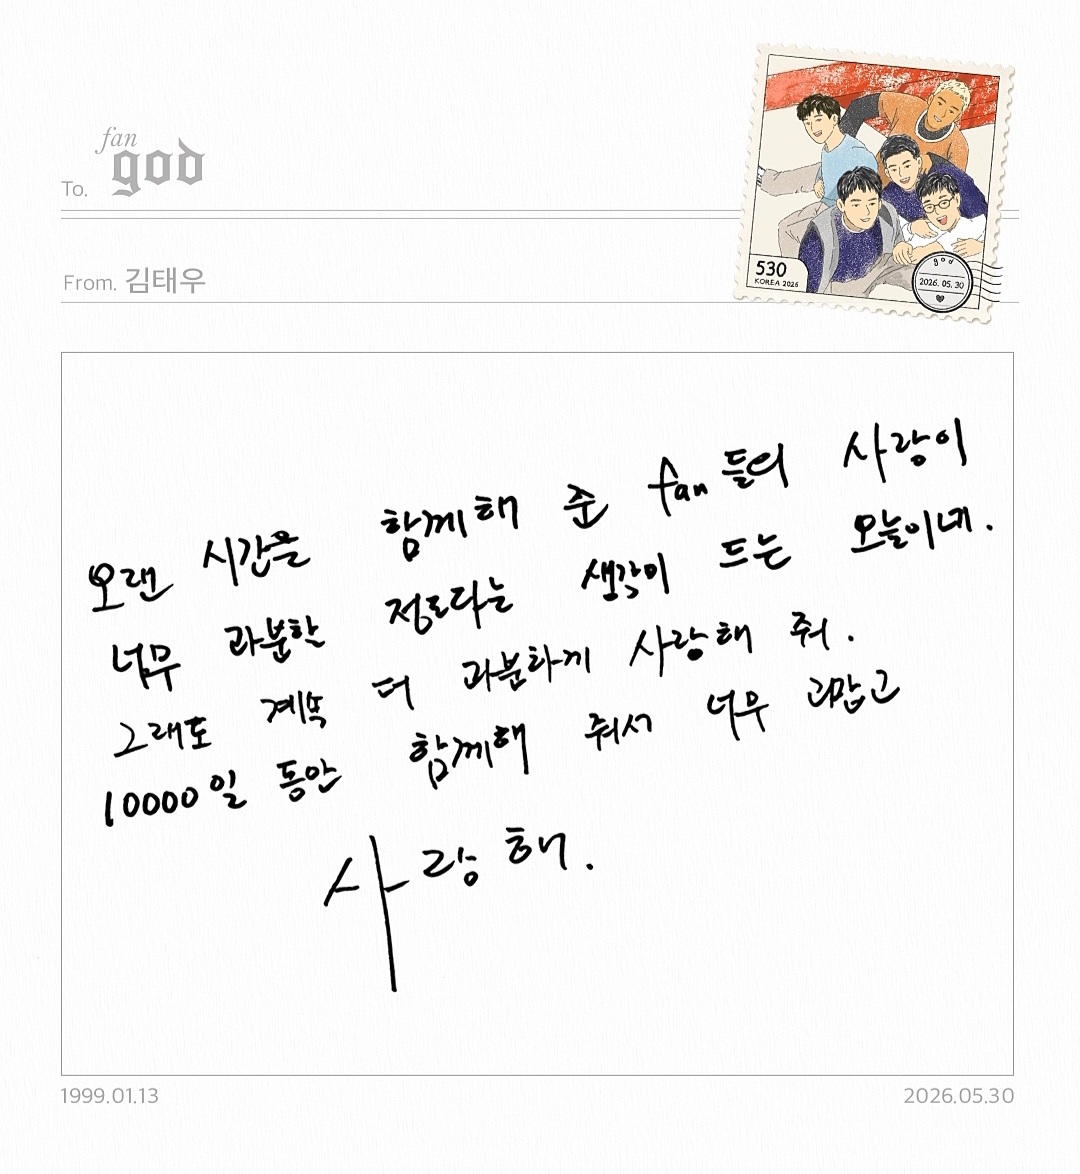 fan
god
To.
From. 김태우
530
KOREA 2026
god
2026. 05. 30
오랜 시간을 함께해 준 fan들의 사랑이
너무 과분할 정도다는 생각이 드는 오늘이네.
그래도 계속 더 과분하게 사랑해 줘.
10000일 동안 함께해 줘서 너무 고맙고
사랑해.
1999.01.13
2026.05.30